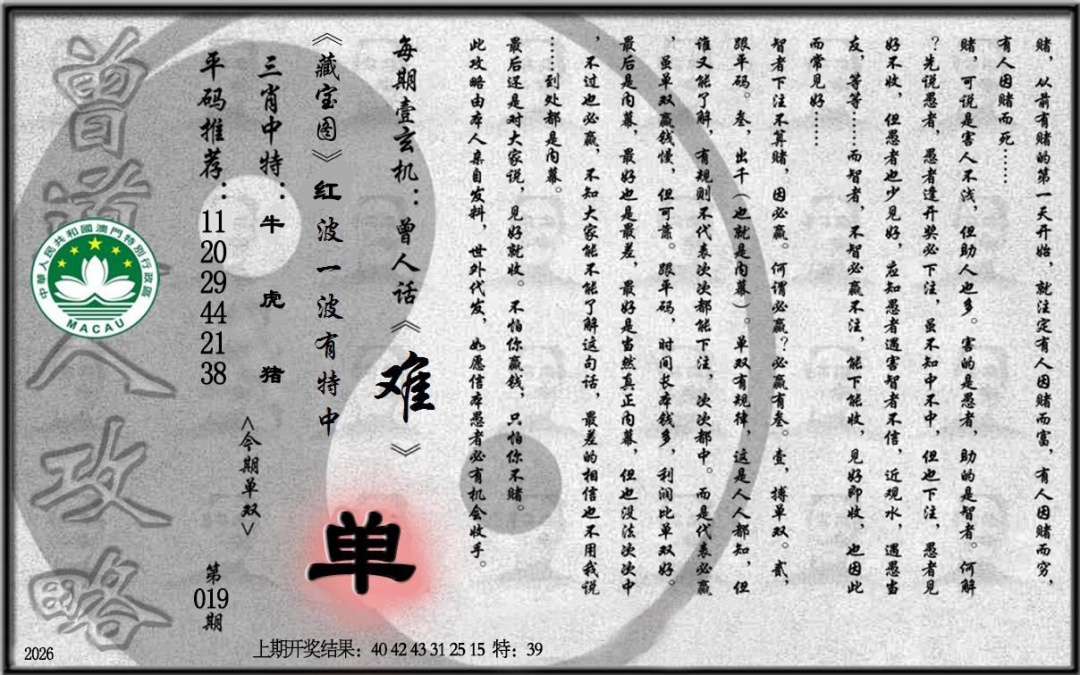 赌，从前有赌的第一天开始，就注定有人因赌而富，有人因赌而穷，
有人因赌而死……
赌，可说是害人不浅，但助人也多。害的是愚者，助的是智者。何解
？先说愚者，愚者逢开奖必下注，虽不知中不中，但也下注，愚者见
好不收，但愚者也少见好，应知愚者遇害智者不信，近观水，遇愚当
友，等等……而智者，不智必赢不注，能下能收，见好即收，也因此
而常见好……
智者下注不算赌，因必赢。何谓必赢？必赢有叁。壹，搏单双。贰，
跟平码。叁，出千（也就是内幕）。单双有规律，这是人人都知，但
谁又能了解，有规则不代表次次都能下注，次次都中。而是代表必赢
，虽单双赢钱慢，但可靠。跟平码，时间长本钱多，利润比单双好。
最后是内幕，最好也是最差，最好是当然真正内幕，但也没法次次中
，不过也必赢，不知大家能不能了解这句话，最差的相信也不用我说
……到处都是内幕。
最后还是对大家说，见好就收。不怕你赢钱，只怕你不赌。
此攻略由本人亲自发料，世外代发，如愿信本愚者必有机会收手。
每期壹玄机：曾人话《难》
《藏宝图》红波一波有特中
三肖中特：牛 虎 猪
平码推荐：11 20 29 44 21 38
<今期单双>
单
第019期
曾道人攻略
中華人民共和國澳門特別行政區
MACAU
2026
上期开奖结果：40 42 43 31 25 15 特：39